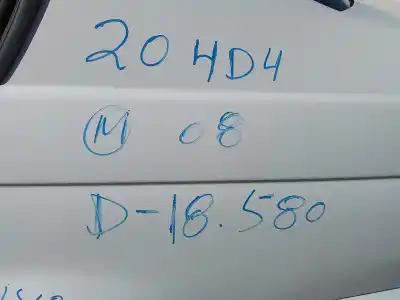 204D4
M 08
D-18.580